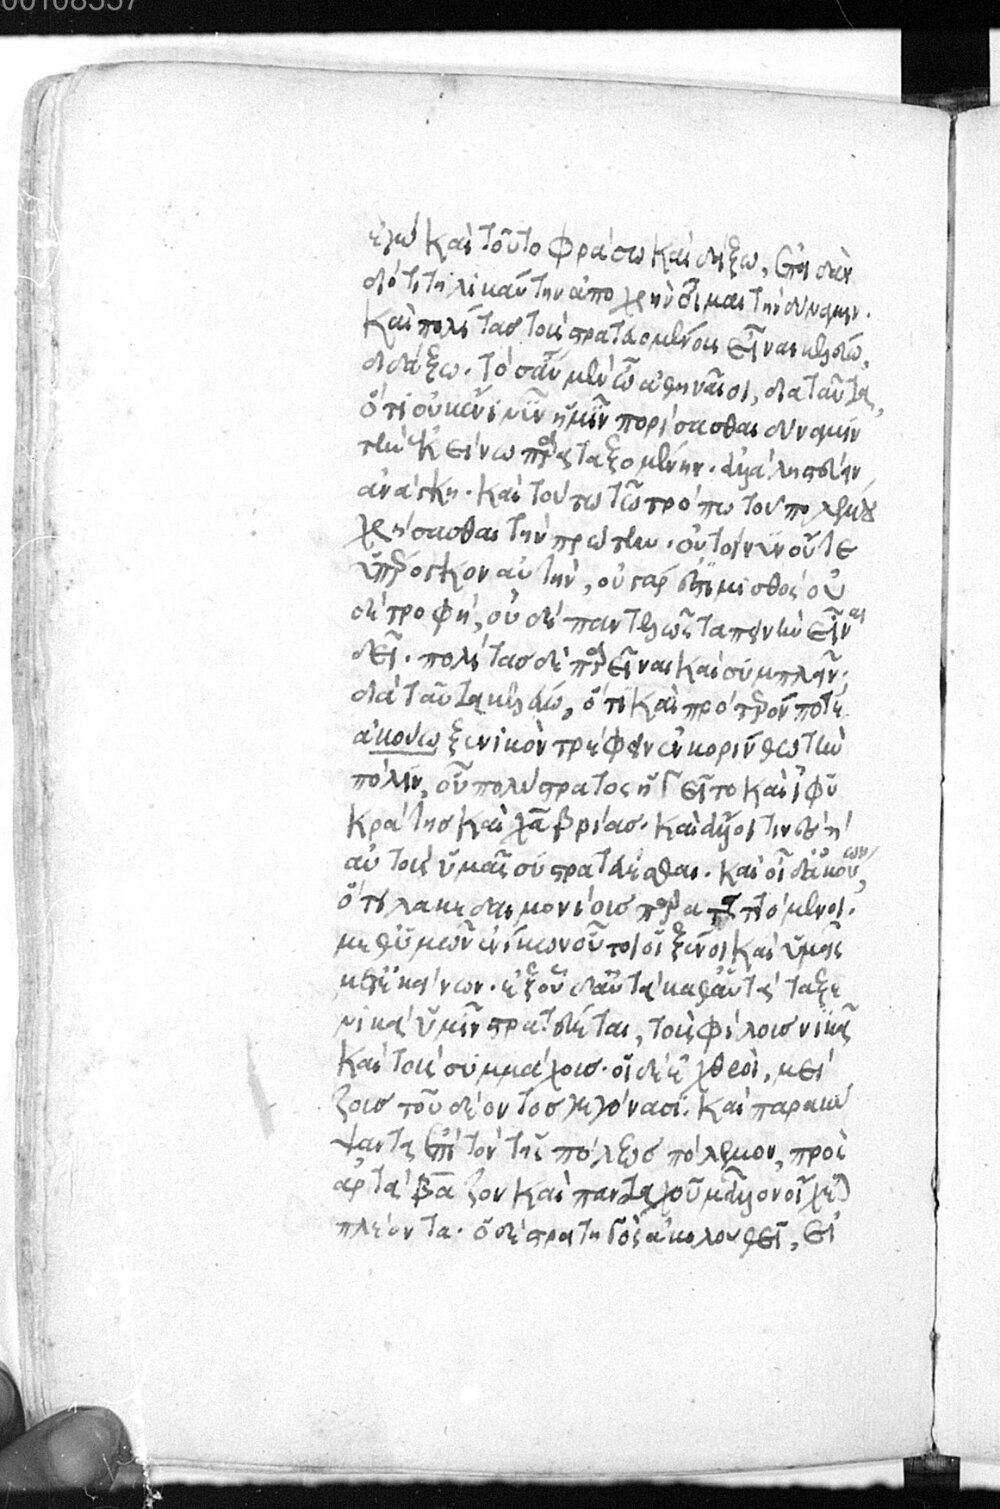 00108557
ἐγὼ καὶ τοῦτο φράσω καὶ δείξω, ἐπειδὰν
διότι τηλικαύτην ἀποχρῆν οἶμαι τὴν δύναμιν.
καὶ πολίτας τοὺς στρατευομένους εἶναι κελεύω,
διδάξω. τοσαύτην μὲν ὦ ἀθηναῖοι, διὰ ταῦτα,
ὅτι οὐκ ἔνι νῦν ἡμῖν πορίσασθαι δύναμιν
τὴν ἐκείνω παραταξομένην. ἀλλὰ ληστεύειν
ἀνάγκη. καὶ τούτω τῶ τρόπω τοῦ πολέμου
χρῆσθαι τὴν πρώτην. οὐ τοίνυν οὔτε
ὑπέρογκον αὐτὴν, οὐ γάρ ἐστι μισθὸς οὐ
δὲ τροφή, οὐδὲ παντελῶς ταπεινὴν εἶναι
δεῖ. πολίτας δὲ παρεῖναι καὶ συμπλεῖν
διὰ ταῦτα κελεύω, ὅτι καὶ πρότερόν ποτ'
ἀκούω ξενικὸν τρέφειν ἐν κορίνθω τὴν
πόλιν, οὗ πολύστρατος ἡγεῖτο καὶ ἰφι
κράτης καὶ χαβρίας. καὶ ἄλλοι τινὲς
αὐτοὺς ὑμᾶς συστρατεύεσθαι. καὶ οἶδα ἀκούων,
ὅτι λακεδαιμονίους παραταττόμενοι.
μεθ' ὑμῶν ἐνίκων οὗτοι οἱ ξένοι καὶ ὑμεῖς
μετ' ἐκείνων. ἐξ οὗ δ' αὐτὰ καθ' αὑτὰ τὰ ξε
νικὰ ὑμῖν στρατεύεται, τοὺς φίλους νικᾶ
καὶ τοὺς συμμάχους. οἱ δὲ ἐχθροὶ, μεί
ζους τοῦ δέοντος γεγόνασι. καὶ παρακύ
ψαντα ἐπὶ τὸν τῆς πόλεως πόλεμον, πρὸς
ἀρτάβαζον καὶ πανταχοῦ μᾶλλον οἴχεται
πλέοντα. ὁ δὲ στρατηγὸς ἀκολουθεῖ, εἰ